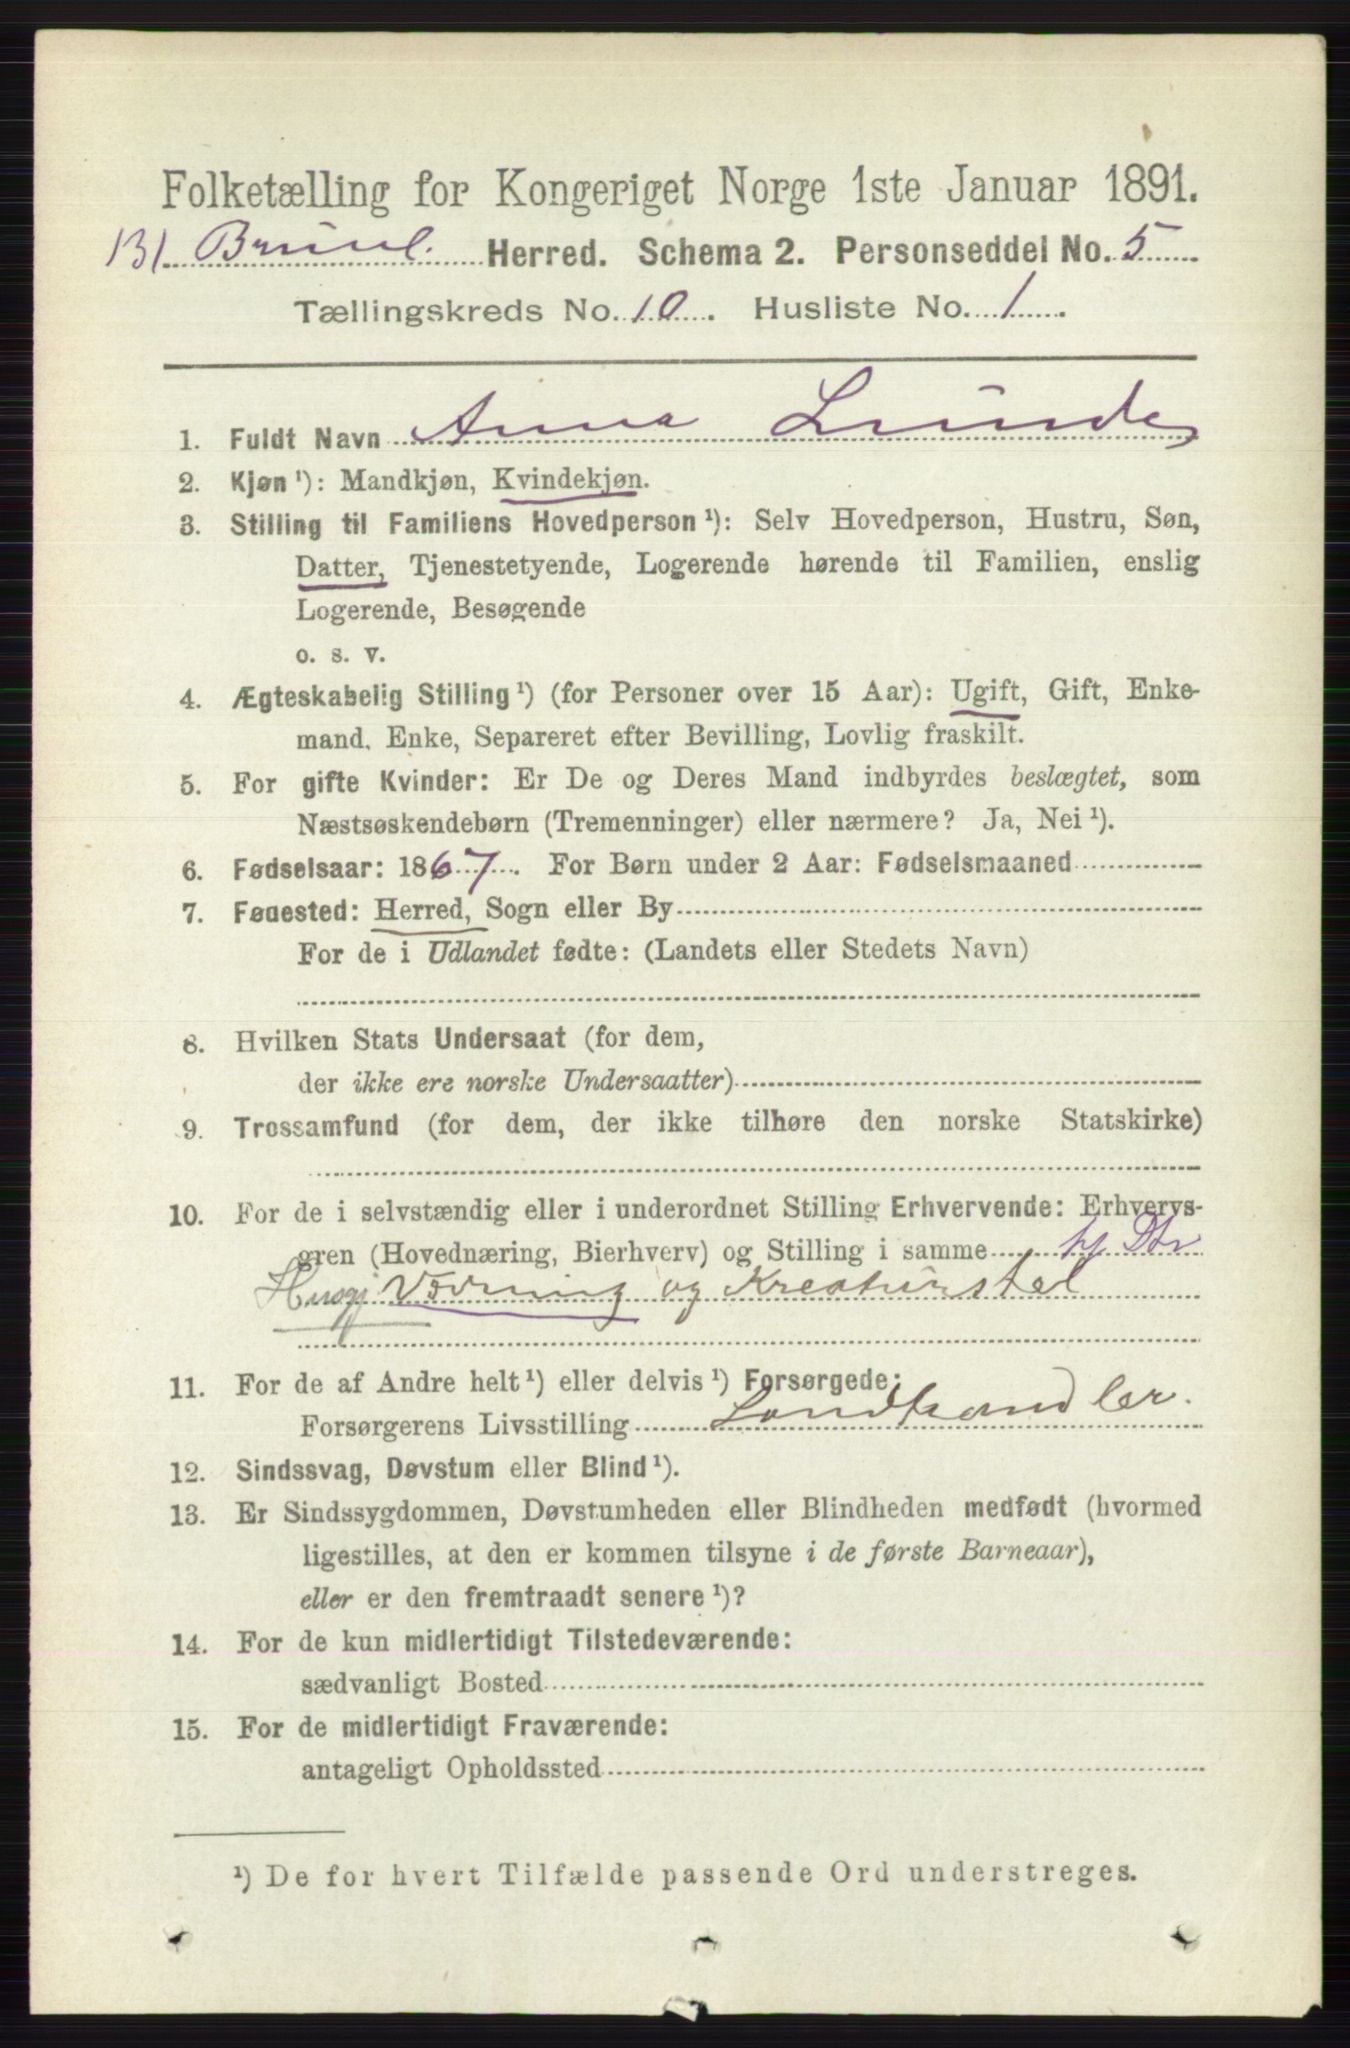 Folketælling for Kongeriget Norge 1ste Januar 1891.
131 Brunl. Herred. Schema 2. Personseddel No. 5
Tællingskreds No. 10. Husliste No. 1.
1. Fuldt Navn Anna Lunde
2. Kjøn ¹): Mandkjøn, Kvindekjøn.
3. Stilling til Familiens Hovedperson ¹): Selv Hovedperson, Hustru, Søn,
Datter, Tjenestetyende, Logerende hørende til Familien, enslig
Logerende, Besøgende
o. s. v.
4. Ægteskabelig Stilling ¹) (for Personer over 15 Aar): Ugift, Gift, Enke-
mand, Enke, Separeret efter Bevilling, Lovlig fraskilt.
5. For gifte Kvinder: Er De og Deres Mand indbyrdes beslægtet, som
Næstsøskendebørn (Tremenninger) eller nærmere? Ja, Nei ¹).
6. Fødselsaar: 1867. For Børn under 2 Aar: Fødselsmaaned
7. Fødested: Herred, Sogn eller By
For de i Udlandet fødte: (Landets eller Stedets Navn)
8. Hvilken Stats Undersaat (for dem,
der ikke ere norske Undersaatter)
9. Trossamfund (for dem, der ikke tilhøre den norske Statskirke)
10. For de i selvstændig eller i underordnet Stilling Erhvervende: Erhvervs-
gren (Hovednæring, Bierhverv) og Stilling i samme hj Dtr
Husgj Vævning og Kreaturstel
11. For de af Andre helt ¹) eller delvis ¹) Forsørgede:
Forsørgerens Livsstilling Landhandler.
12. Sindssvag, Døvstum eller Blind ¹).
13. Er Sindssygdommen, Døvstumheden eller Blindheden medfødt (hvormed
ligestilles, at den er kommen tilsyne i de første Barneaar),
eller er den fremtraadt senere ¹)?
14. For de kun midlertidigt Tilstedeværende:
sædvanligt Bosted
15. For de midlertidigt Fraværende:
antageligt Opholdssted
¹) De for hvert Tilfælde passende Ord understreges.